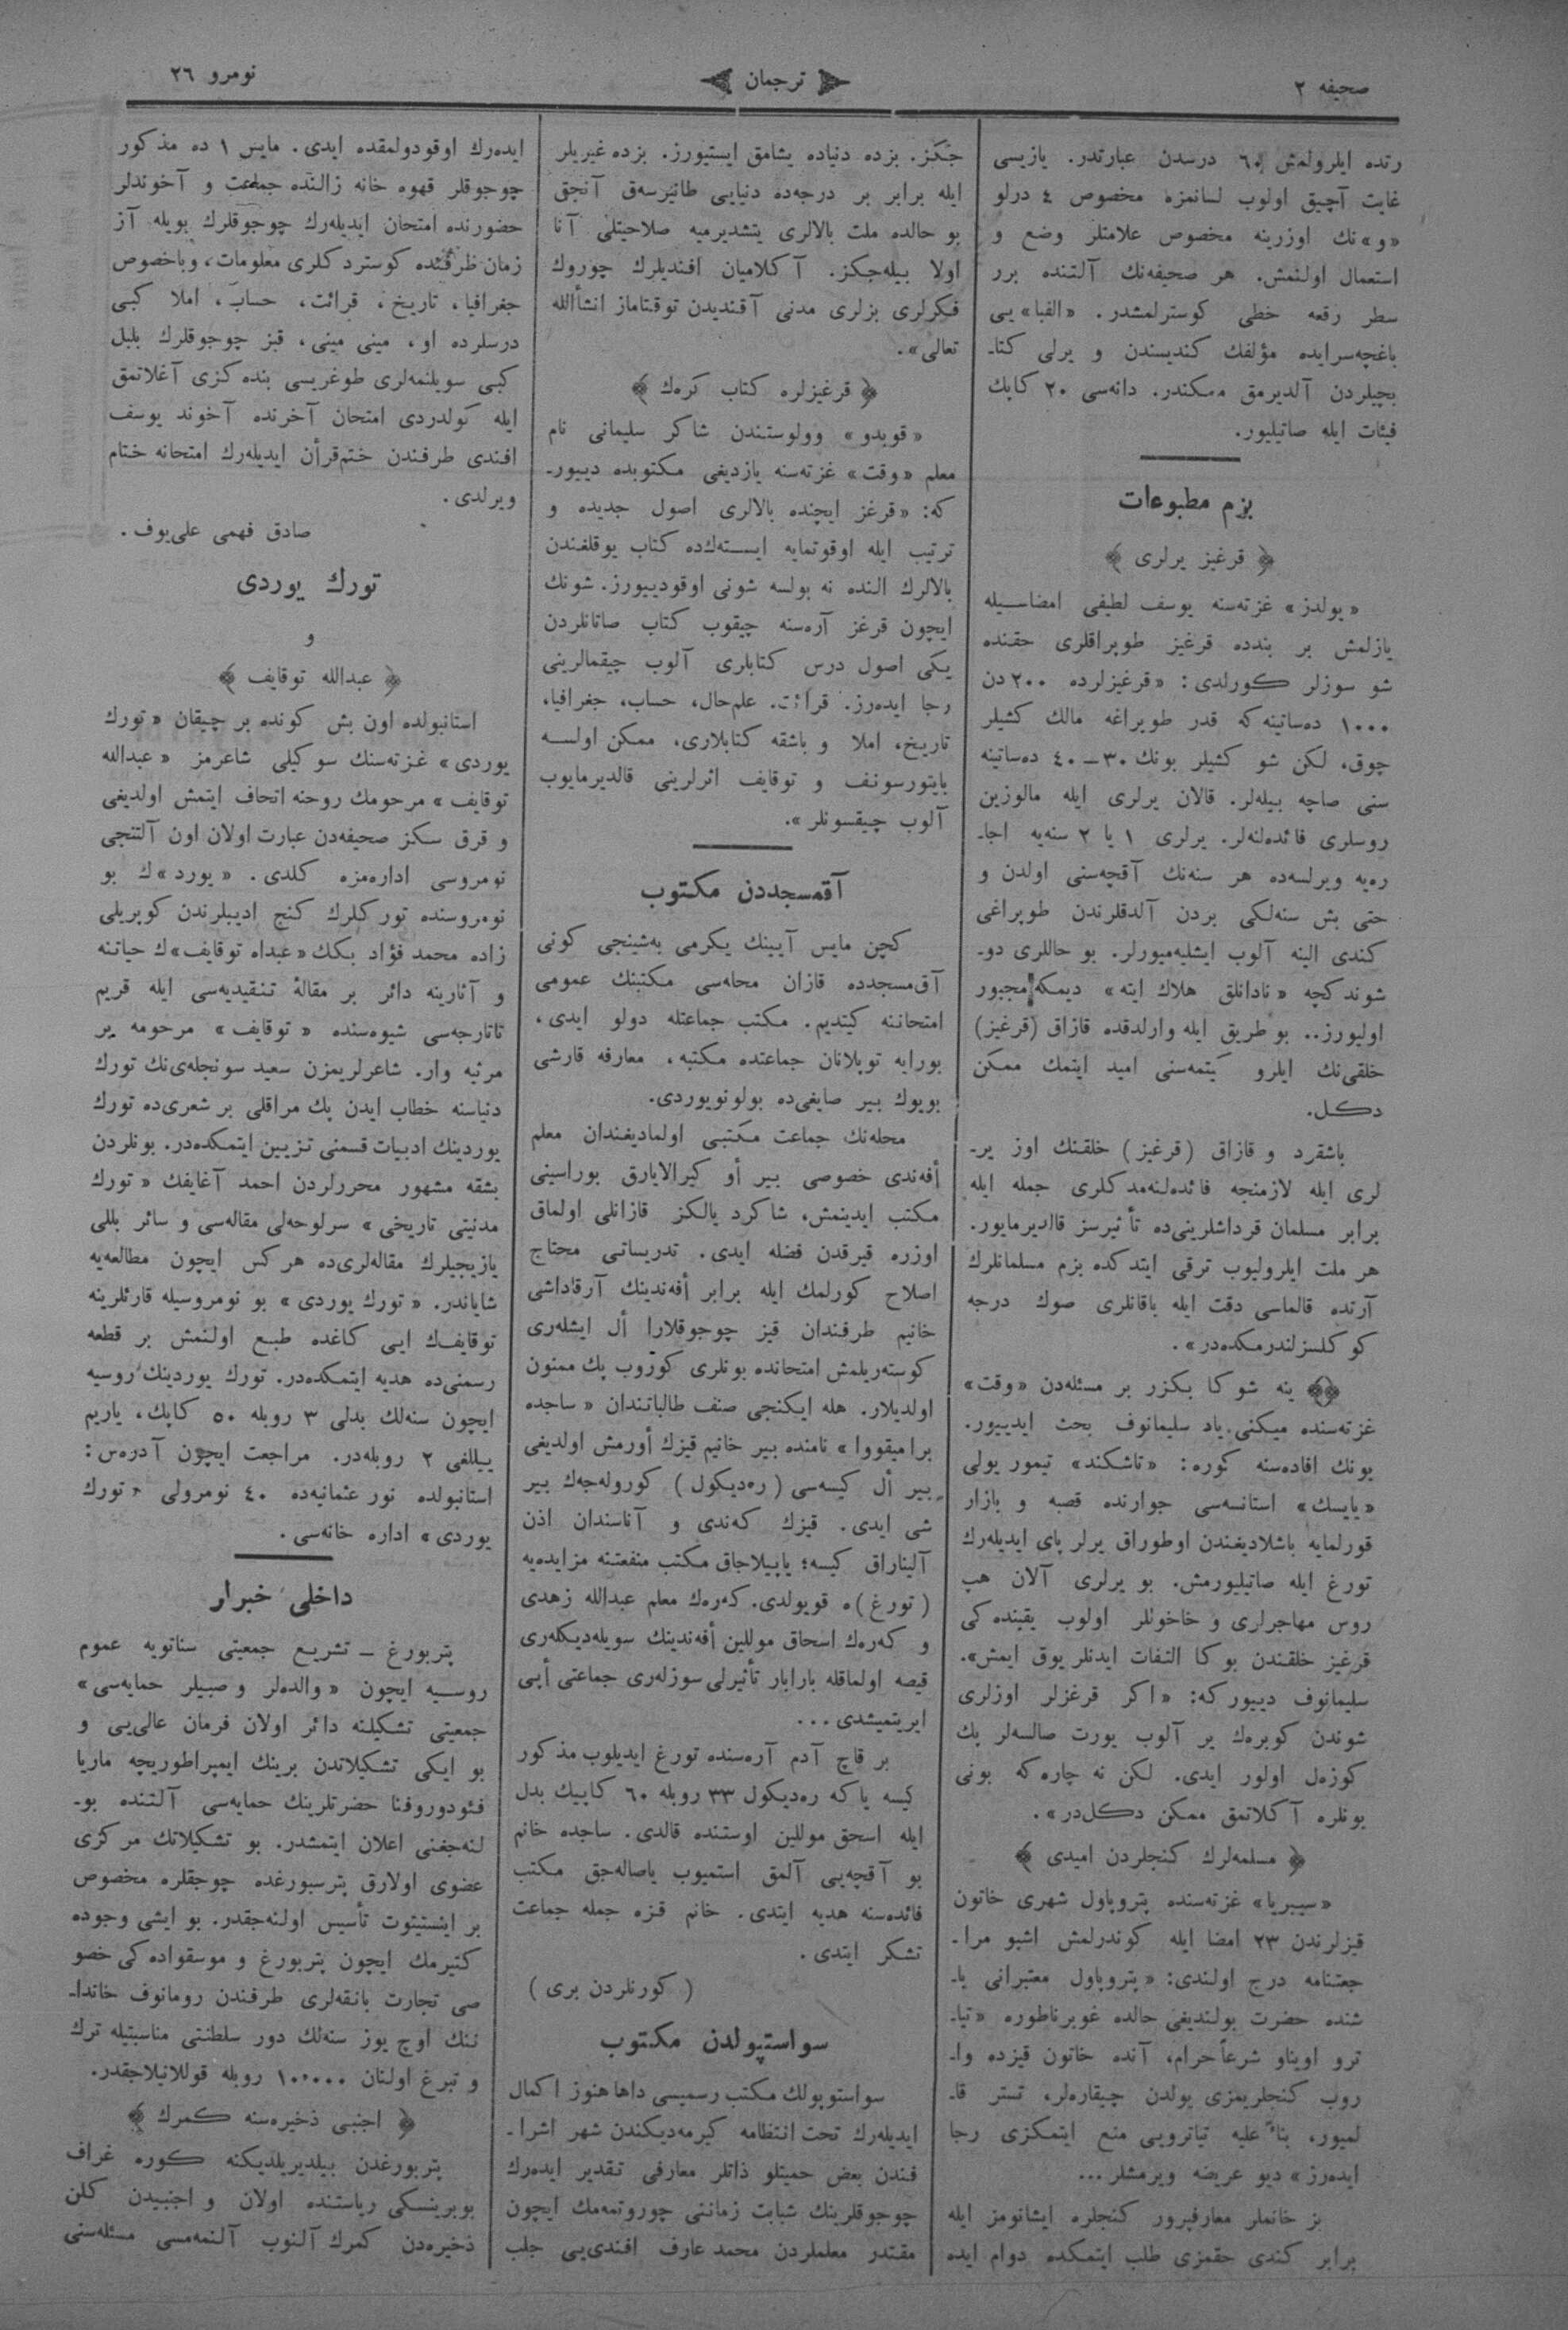 صحيفه ٢
ترجمان
نومرو ٢٦
رتده ايلرولمش ٦٠ درسدن عبارتدر. يازيسى
غايت آچيق اولوب لسانمزه مخصوص ٤ درلو
«و»نك اوزرينه مخصوص علامتلر وضع و
استعمال اولنمش. هر صحيفه‌نك آلتنده برر
سطر رقعه خطى كوسترلمشدر. «الفبا»يى
باغچه‌سرايده مؤلفك كنديسندن و يرلى كتا-
بچيلردن آلديرمق ممكندر. دانه‌سى ٢٠ كاپك
فيئات ايله صاتيليور.
بزم مطبوعات
﴿ قرغيز يرلرى ﴾
«يولدز» غزته‌سنه يوسف لطيفى امضاسيله
يازلمش بر بندده قرغيز طوپراقلرى حقنده
شو سوزلر كورلدى: «قرغيزلرده ٢٠٠دن
١٠٠٠ ده‌ساتينه‌كه قدر طوپراغه مالك كشيلر
چوق، لكن شو كشيلر بونك ٣٠—٤٠ ده‌ساتينه
سنى صاچه بيله‌لر. قالان يرلرى ايله مالوزين
روسلرى فائده‌لنه‌لر. يرلرى ١ يا ٢ سنه‌يه اجا-
ره‌يه ويرلسه‌ده هر سنه‌نك آقچه‌سنى اولدن و
حتى بش سنه‌لكى بردن آلدقلرندن طوپراغى
كندى الينه آلوب ايشليه‌ميورلر. بو حاللرى دو-
شوندكچه «نادانلق هلاك ايته» ديمكه مجبور
اوليورز.. بو طريق ايله وارلدقده قازاق (قرغيز)
خلقى‌نك ايلرو كيتمه‌سنى اميد ايتمك ممكن
دكل.
باشقرد و قازاق (قرغيز) خلقنك اوز ير-
لرى ايله لازمنجه فائده‌لنه‌مدكلرى جمله ايله
برابر مسلمان قرداشلرينى‌ده تأثيرسز قالديرمايور.
هر ملت ايلروليوب ترقى ايتدكده بزم مسلمانلرك
آرتده قالماسى دقت ايله باقانلرى صوك درجه
كوكلسزلندرمكده‌در».
ينه شوكا بكزر بر مسئله‌دن «وقت»
غزته‌سنده ميكنى.ياد سليمانوف بحث ايدييور.
بونك افاده‌سنه كوره: «تاشكند» تيمور يولى
«يايسك» استانسه‌سى جوارنده قصبه و بازار
قورلمايه باشلاديغندن اوطوراق يرلر پاى ايديله‌رك
تورغ ايله صاتيليورمش. بو يرلرى آلان هپ
روس مهاجرلرى و خاخوللر اولوب يقينده‌كى
قرغيز خلقندن بوكا التفات ايدنلر يوق ايمش».
سليمانوف دييوركه: «اكر قرغزلر اوزلرى
شوندن كوبره‌ك ير آلوب يورت صالسه‌لر پك
كوزه‌ل اولور ايدى. لكن نه چاره‌كه بونى
بونلره آكلاتمق ممكن دكل‌در».
﴿ مسلمه‌لرك كنجلردن اميدى ﴾
«سيبريا» غزته‌سنده پتروپاول شهرى خاتون
قيزلرندن ٢٣ امضا ايله كوندرلمش اشبو مرا-
جعتنامه درج اولندى: «پتروپاول معتبرانى با-
شنده حضرت بولنديغى حالده غوبرناطوره «تيا-
ترو اويناو شرعاً حرام، آنده خاتون قيزده وا-
روب كنجلريمزى يولدن چيقاره‌لر، تستر قا-
لميور، بناءً عليه تياترويى منع ايتمكزى رجا
ايده‌رز» ديو عريضه ويرمشلر...
بز خانملر معارفپرور كنجلره ايشانومز ايله
برابر كندى حقمزى طلب ايتمكده دوام ايده
جكز. بزده دنياده يشامق ايستيورز. بزده غيريلر
ايله برابر بر درجه‌ده دنيايى طانيرسه‌ق آنجق
بو حالده ملت بالالرى يتشديرميه صلاحيتلى آنا
اولا بيله‌جكز. آكلاميان افنديلرك چوروك
فكرلرى بزلرى مدنى آقنديدن توقتاماز انشأالله
تعالى».
﴿ قرغيزلره كتاب كره‌ك ﴾
«قوبدو» وولوستندن شاكر سليمانى نام
معلم «وقت» غزته‌سنه يازديغى مكتوبده دييور-
كه: «قرغز ايچنده بالالرى اصول جديده و
ترتيب ايله اوقوتمايه ايسته‌ك‌ده كتاب يوقلغندن
بالالرك النده نه بولسه شونى اوقودييورز. شونك
ايچون قرغز آره‌سنه چيقوب كتاب صاتانلردن
يكى اصول درس كتابلرى آلوب چيقمالرينى
رجا ايده‌رز. قرائت. علم‌حال، حساب، جغرافيا،
تاريخ، املا و باشقه كتابلارى، ممكن اولسه
بايتورسونف و توقايف اثرلرينى قالديرمايوب
آلوب چيقسونلر».
آقمسجددن مكتوب
كچن مايس آيينك يكرمى به‌شينجى كونى
آق‌مسجدده قازان محله‌سى مكتبنك عمومى
امتحاننه كيتديم. مكتب جماعتله دولو ايدى،
بورايه توپلانان جماعتده مكتبه، معارفه قارشى
بويوك بير صايغى‌ده بولونويوردى.
محله‌نك جماعت مكتبى اولماديغندان معلم
أفه‌ندى خصوصى بير أو كيرالايارق بوراسينى
مكتب ايدينمش، شاكرد يالكز قازانلى اولماق
اوزره قيرقدن فضله ايدى. تدريساتى محتاج
اصلاح كورلمك ايله برابر أفه‌ندينك آرقاداشى
خانيم طرفندان قيز چوجوقلارا أل ايشله‌رى
كوسته‌ريلمش امتحانده بونلرى كوروب پك ممنون
اولديلار. هله ايكنجى صنف طالباتندان «ساجده
براميقووا» نامنده بير خانيم قيزك أورمش اولديغى
بير أل كيسه‌سى (ره‌ديكول) كوروله‌جه‌ك بير
شى ايدى. قيزك كه‌ندى و آناسندان اذن
آليناراق كيسه؛ ياپيلاجاق مكتب منفعتنه مزايده‌يه
(تورغ)ه قويولدى. كه‌ره‌ك معلم عبدالله زهدى
و كه‌ره‌ك اسحاق موللين أفه‌ندينك سويله‌ديكله‌رى
قيصه اولماقله بارابار تأثيرلى سوزله‌رى جماعتى أيى
ايريتميشدى...
بر قاچ آدم آره‌سنده تورغ ايديلوب مذكور
كيسه ياكه ره‌ديكول ٣٣ روبله ٦٠ كاپيك بدل
ايله اسحق موللين اوستنده قالدى. ساجده خانم
بو آقچه‌يى آلمق استميوب ياصاله‌جق مكتب
فائده‌سنه هديه ايتدى. خانم قزه جمله جماعت
تشكر ايتدى.
(كورنلردن برى)
سواستپولدن مكتوب
سواستوبولك مكتب رسميسى داها هنوز اكمال
ايديله‌رك تحت انتظامه كيرمه‌ديكندن شهر اشرا-
فندن بعض حميتلو ذاتلر معارفى تقدير ايده‌رك
چوجوقلرينك شبابت زمانى چوروتمه‌مك ايچون
مقتدر معلملردن محمد عارف افندى‌يى جلب
ايده‌رك اوقودولمقده ايدى. مايس ١ ده مذكور
چوجوقلر قهوه خانه زالنده جماعت و آخوندلر
حضورنده امتحان ايديله‌رك چوجوقلرك بويله آز
زمان ظرفنده كوستردكلرى معلومات، وباخصوص
جغرافيا، تاريخ، قرائت، حساب، املا كبى
درسلرده او، مينى مينى، قيز چوجوقلرك بلبل
كبى سويلنمه‌لرى طوغريسى بنده‌كزى آغلاتمق
ايله كولدردى امتحان آخرنده آخوند يوسف
افندى طرفندن ختم‌قرأن ايديله‌رك امتحانه ختام
ويرلدى.
صادق فهمى على‌يوف.
تورك يوردى
و
﴿ عبدالله توقايف ﴾
استانبولده اون بش كونده بر چيقان «تورك
يوردى» غزته‌سنك سوكيلى شاعرمز «عبدالله
توقايف» مرحومك روحنه اتحاف ايتمش اولديغى
و قرق سكز صحيفه‌دن عبارت اولان اون آلتنجى
نومروسى اداره‌مزه كلدى. «يورد»ك بو
نومروسنده توركلرك كنج اديبلرندن كوپريلى
زاده محمد فؤاد بكك «عبداه توقايف»ك حياتنه
و آثارينه دائر بر مقالۀ تنقيديه‌سى ايله قريم
تاتارجه‌سى شيوه‌سنده «توقايف» مرحومه بر
مرثيه وار. شاعرلريمزن سعيد سونجله‌ى‌نك تورك
دنياسنه خطاب ايدن پك مراقلى بر شعرى‌ده تورك
يوردينك ادبيات قسمنى تزيين ايتمكده‌در. بونلردن
بشقه مشهور محررلردن احمد آغايفك «تورك
مدنيتى تاريخى» سرلوحه‌لى مقاله‌سى و سائر بللى
يازيجيلرك مقاله‌لرى‌ده هركس ايچون مطالعه‌يه
شاياندر. «تورك يوردى» بو نومروسيله قارئلرينه
توقايفك ايى كاغده طبع اولنمش بر قطعه
رسمنى‌ده هديه ايتمكده‌در. تورك يوردينك روسيه
ايچون سنه‌لك بدلى ٣ روبله ٥٠ كاپك، ياريم
ييللغى ٢ روبله‌در. مراجعت ايچون آدره‌س:
استانبولده نور عثمانيه‌ده ٤٠ نومرولى «تورك
يوردى» اداره خانه‌سى.
داخلى خبرلر
پتربورغ — تشريع جمعيتى سناتويه عموم
روسيه ايچون «والده‌لر و صبيلر حمايه‌سى»
جمعيتى تشكيلنه دائر اولان فرمان عالى‌يى و
بو ايكى تشكيلاتدن برينك ايمپراطوريچه ماريا
فئودوروفنا حضرتلرينك حمايه‌سى آلتنده بو-
لنه‌جغنى اعلان ايتمشدر. بو تشكيلاتك مركزى
عضوى اولارق پترسبورغده چوجقلره مخصوص
بر اينستيتوت تأسيس اولنه‌جقدر. بو ايشى وجوده
كتيرمك ايچون پتربورغ و موسقواده‌كى خصو
صى تجارت بانقه‌لرى طرفندن رومانوف خاندا-
ننك اوچ يوز سنه‌لك دور سلطنتى مناسبتيله ترك
و تبرع اولنان ١٠٠,٠٠٠ روبله قوللانيلاجقدر.
﴿ اجنبى ذخيره‌سنه كمرك ﴾
پتربورغدن بيلديريلديكنه كوره غراف
بوبرينسكى رياستنده اولان و اجنبيدن كلن
ذخيره‌دن كمرك آلنوب آلنمه‌مسى مسئله‌سنى